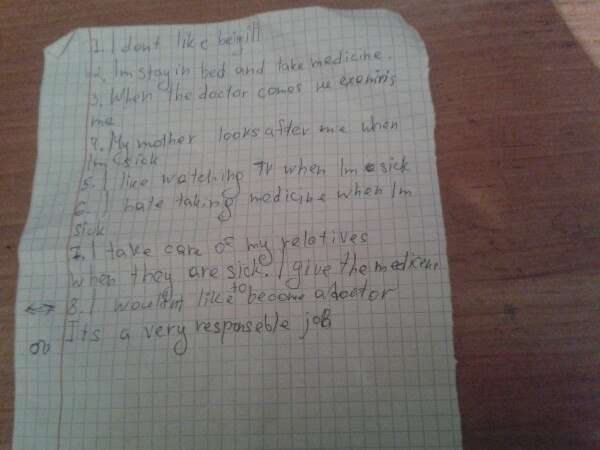 1. I dont like being ill
2. Im stay in bed and take medicine.
3. When the doctor comes he examinis
me
4. My mother looks after me when
Im sick
5. I like watching TV when Im sick
6. I hate taking medicine when Im
sick
7. I take care of my relatives
when they are sick. I give the medicine
8. I wouldnt like to become a doctor
Its a very responseble job